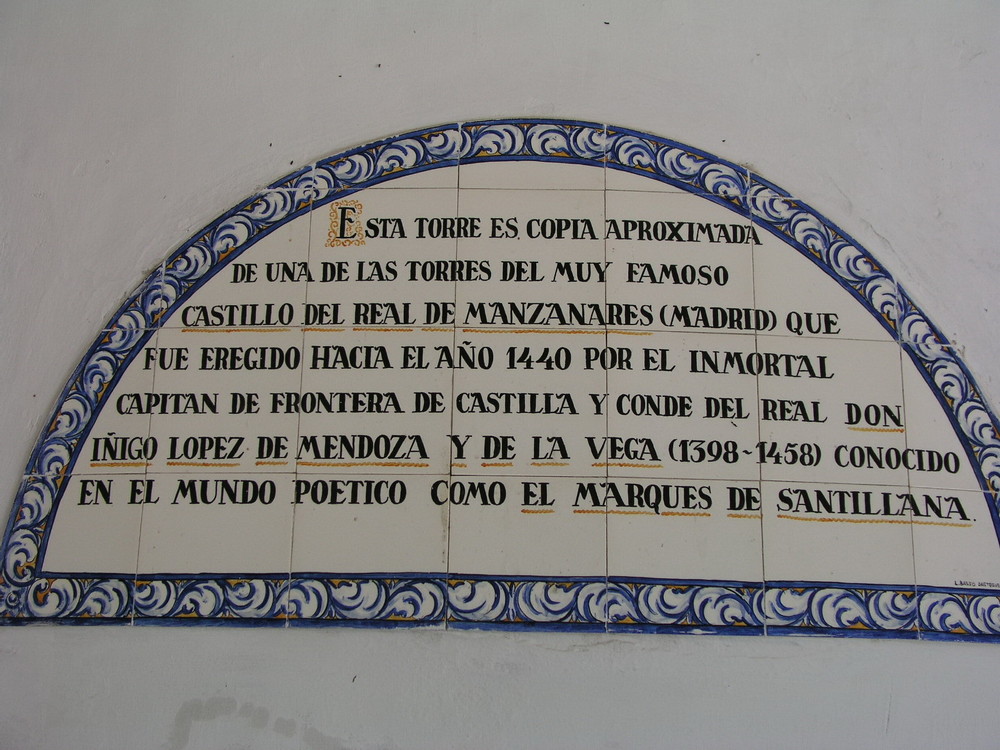 ESTA TORRE ES COPIA APROXIMADA
DE UNA DE LAS TORRES DEL MUY FAMOSO
CASTILLO DEL REAL DE MANZANARES (MADRID) QUE
FUE EREGIDO HACIA EL AÑO 1440 POR EL INMORTAL
CAPITAN DE FRONTERA DE CASTILLA Y CONDE DEL REAL DON
IÑIGO LOPEZ DE MENDOZA Y DE LA VEGA (1398-1458) CONOCIDO
EN EL MUNDO POETICO COMO EL MARQUES DE SANTILLANA.